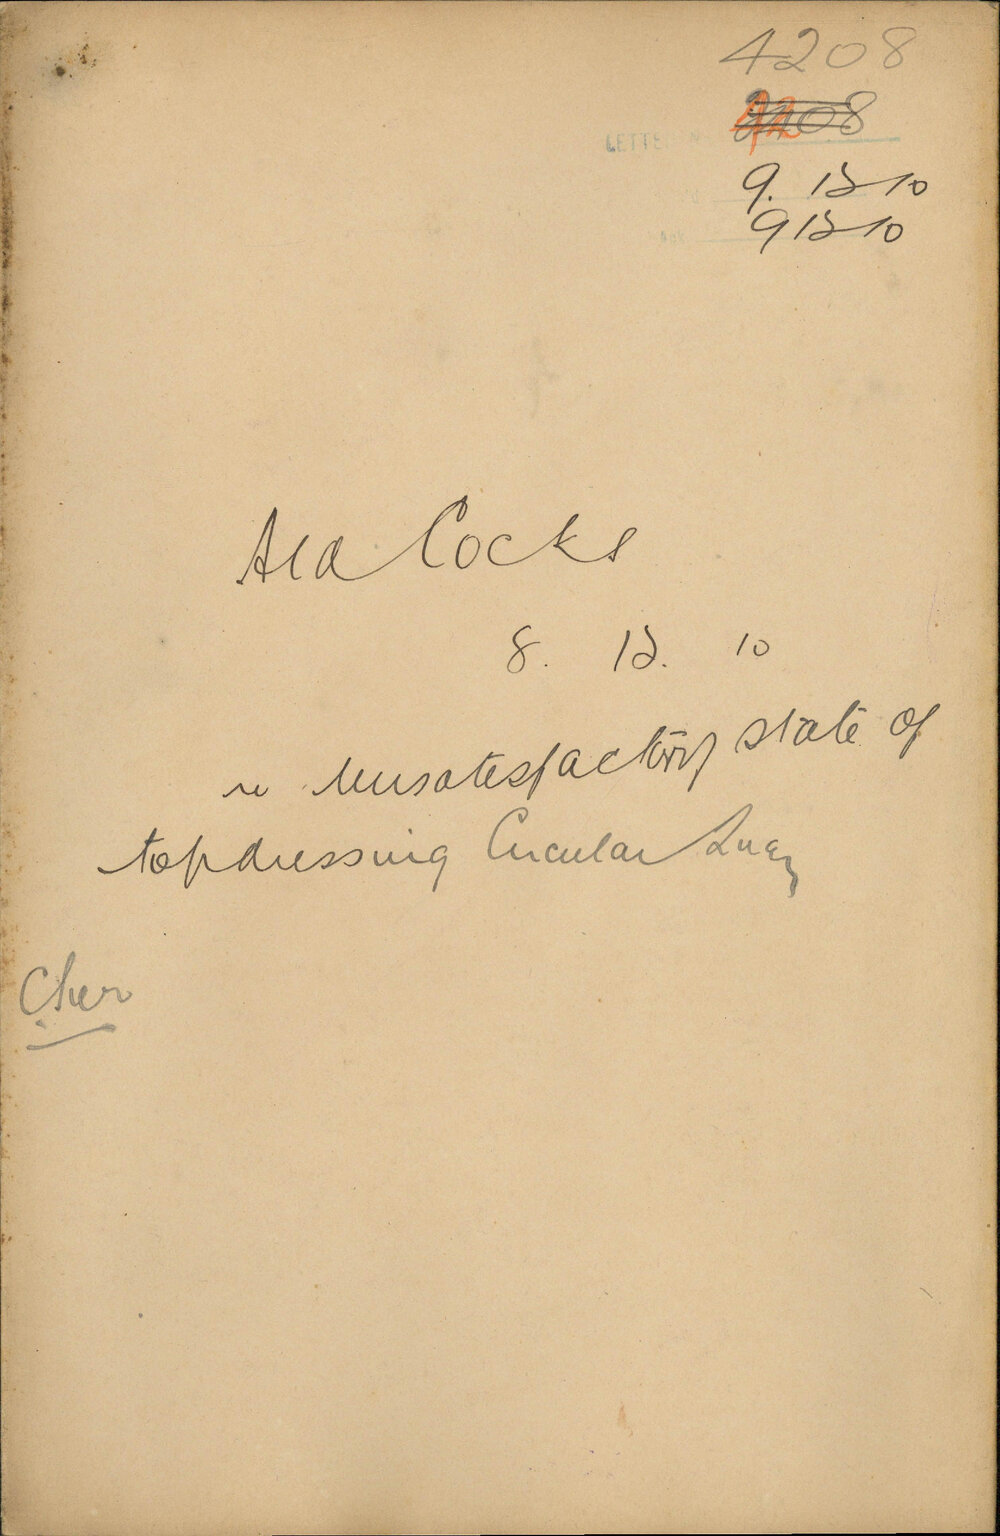 4208
LETTE
9. 12 10
Ack
9 12 10
Ald Cocks
8. 12. 10
re Unsatisfactory state of
topdressing Circular Quay